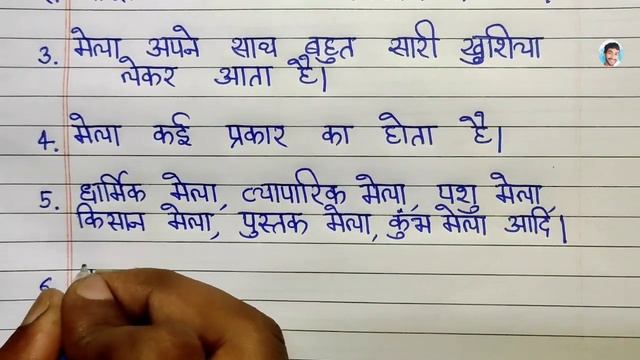 3. मेला अपने साथ बहुत सारी खुशिया
लेकर आता है।
4. मेला कई प्रकार का होता है।
5. धार्मिक मेला, व्यापारिक मेला, पशु मेला,
किसान मेला, पुस्तक मेला, कुंभ मेला आदि।
6.